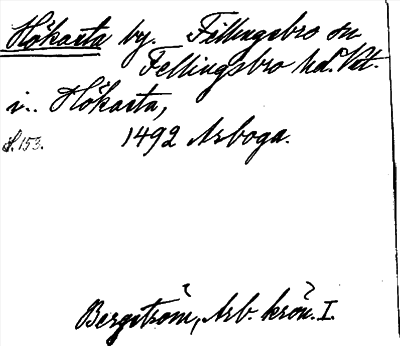 Hökasta by. Fellingsbro sn
Fellingsbro hd. Vst.
i.. Hökasta,
s. 153. 1492 Arboga.
Bergström, Arb. krön. I.